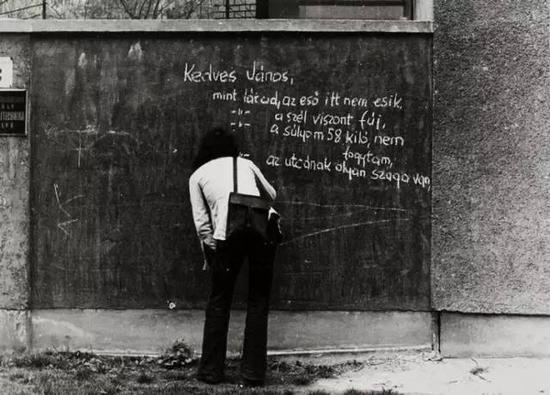 Kedves János,
mint látod, az eső itt nem esik.
-"- a szél viszont fúj,
-"- a súlyom 58 kiló, nem
fogytam,
-"- az utcának olyan szaga van,